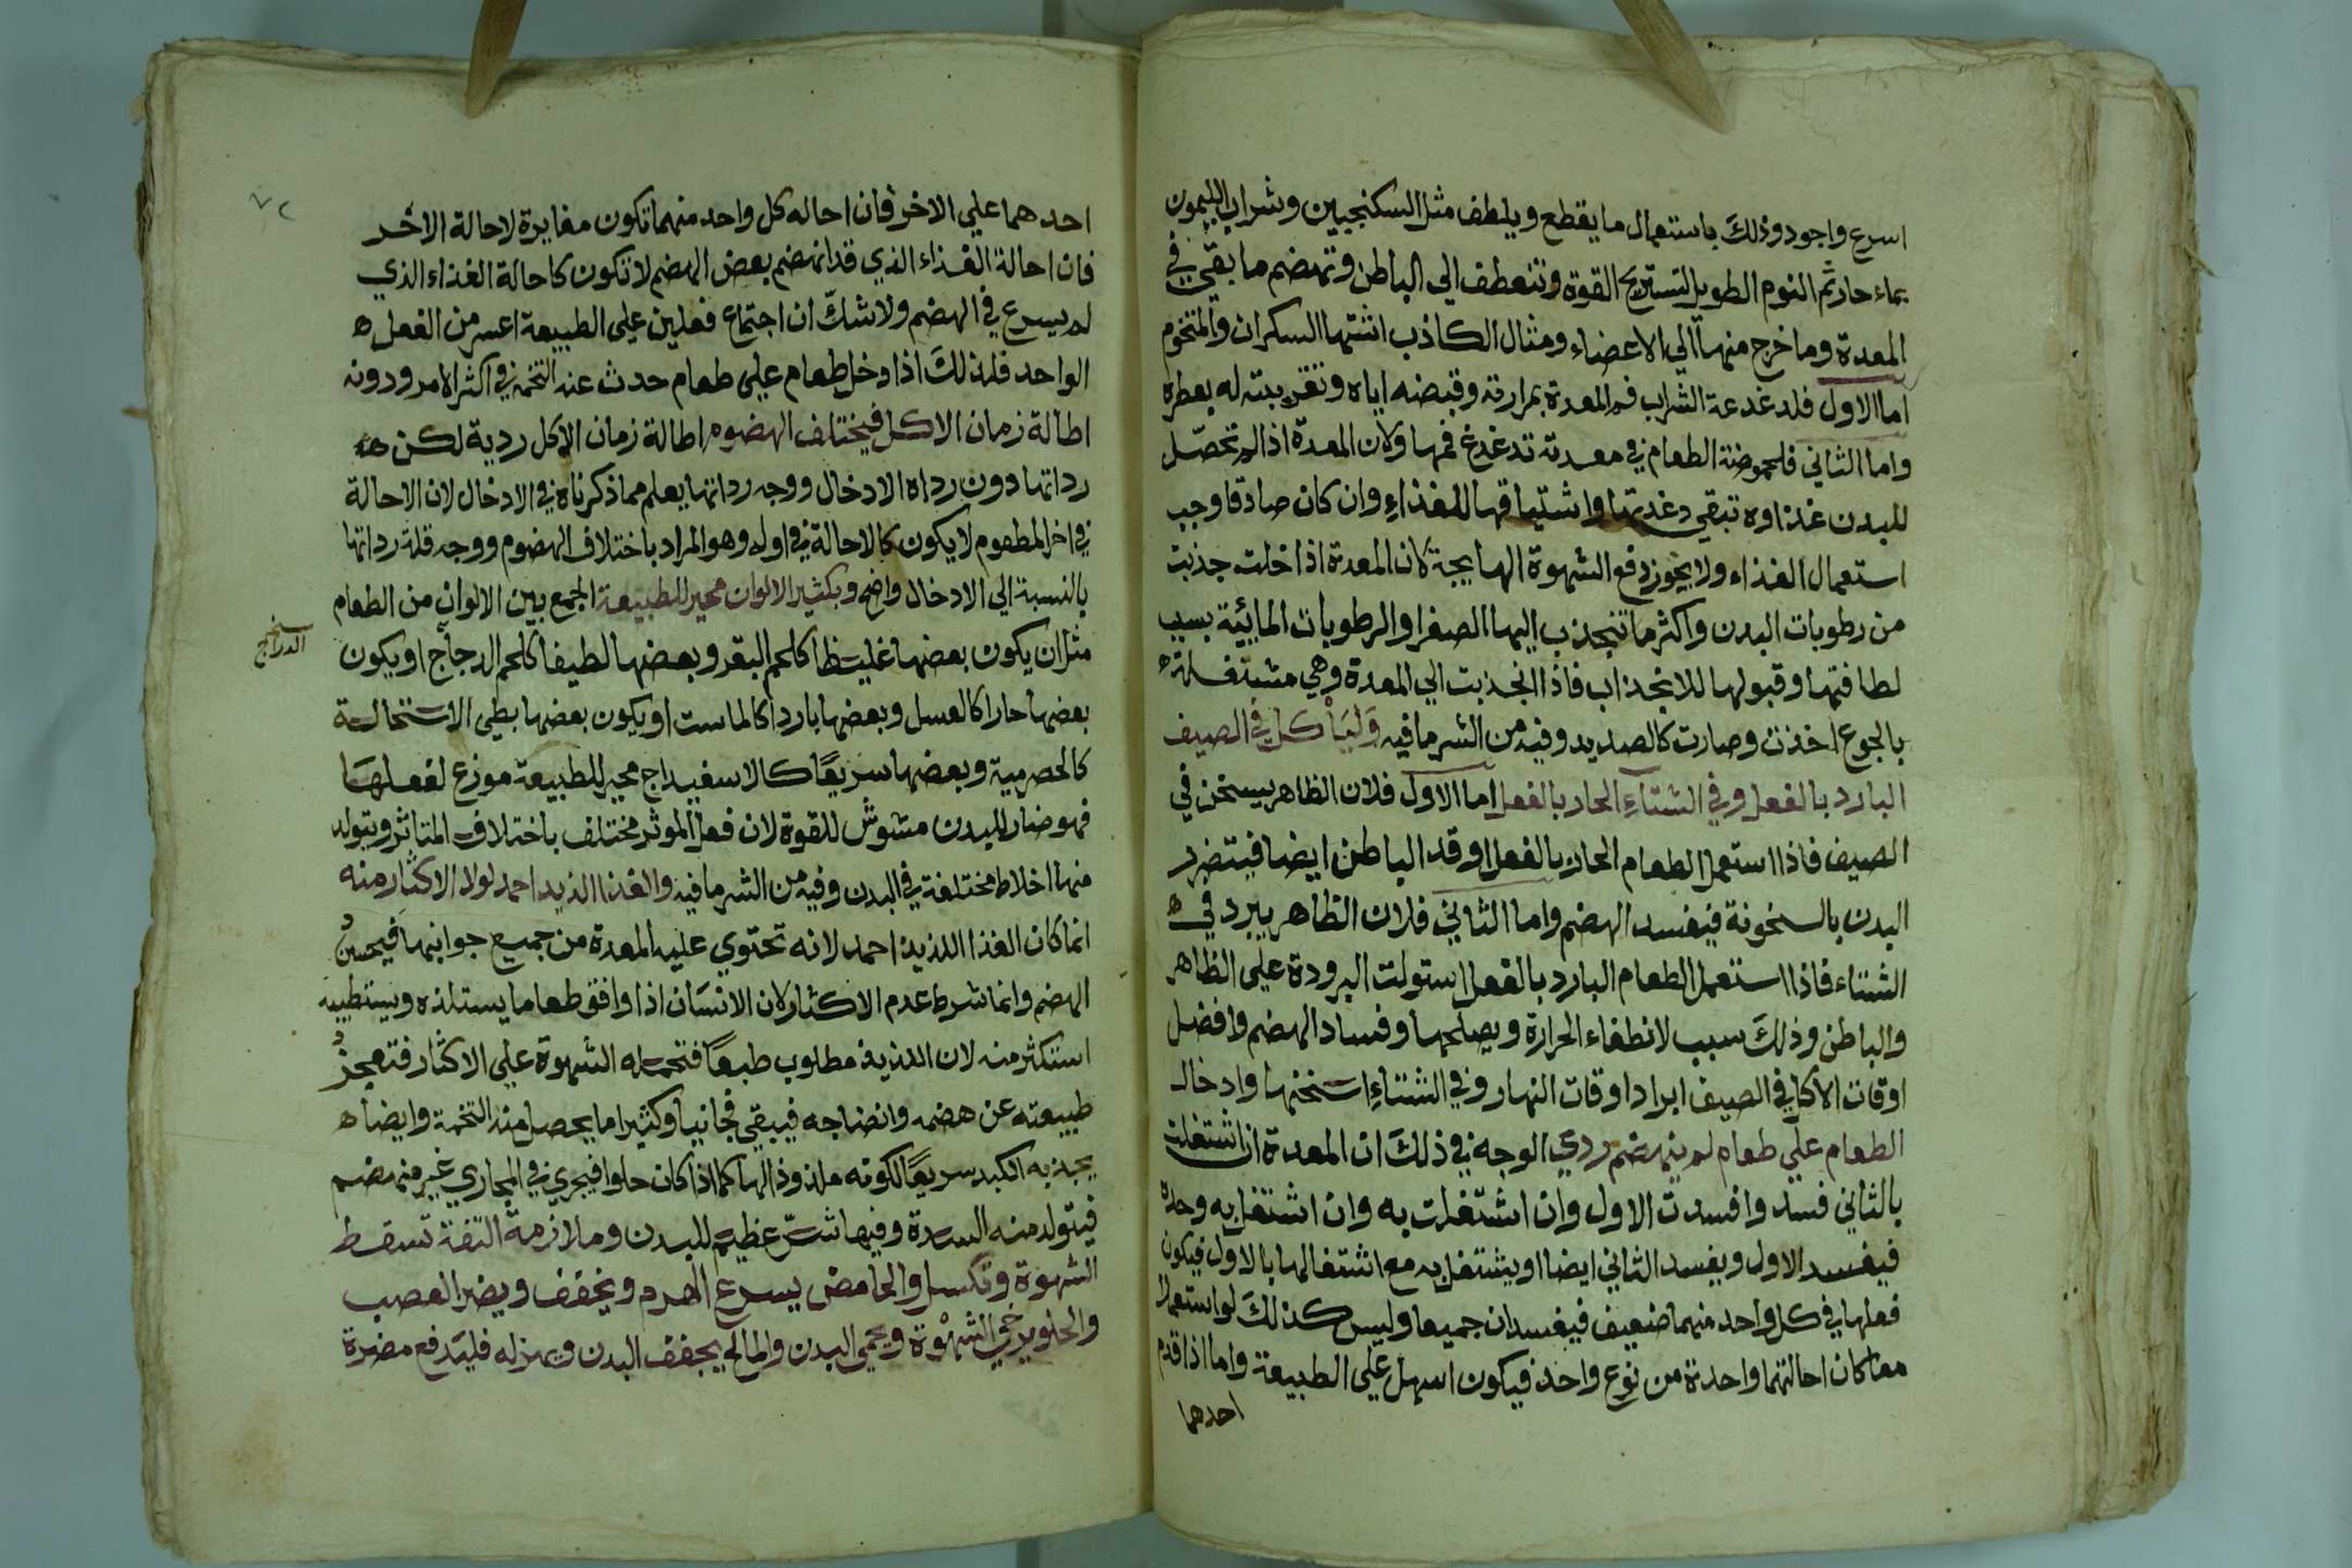 اسرع واجود وذلك باستعمال ما يقطع ويلطف مثل السكنجبين وشراب الليمون
بماء حار ثم النوم الطويل لتستريح القوة وتنعطف الي الباطن وتهضم ما بقي في
المعدة وما خرج منها الي الاعضاء ومثال الكاذب اشتها السكران والمتخوم
اما الاول فلدغدغة الشراب فم المعدة بمرارته وقبضه اياه وتقريبته له بعطره
واما الثاني فلحموضة الطعام في معدته تدغدغ فمها ولان المعدة اذا لم تحصّل
للبدن غذاوه تبقي دغدغتها واشتياقها للغذاءِ وان كان صادقا وجب
استعمال الغذاء ولا يجوز دفع الشهوة الهايجة لان المعدة اذا خلت جذبت
من رطوبات البدن واكثر ما تنجذب اليها الصفرا والرطوبات المائية بسبب
لطافتها وقبولها للانجذاب فاذا انجذبت الي المعدة وهي مشتغلة
بالجوع اخذت وصارت كالصديد وفيه من الشر ما فيه وَليَأْكل في الصيف
البارد بالفعل وفي الشتاءِ الحار بالفعل اما الاول فلان الظاهر يسخن في
الصيف فاذا استعمل الطعام الحار بالفعل اوقد الباطن ايضا فيتضرر
البدن بالسخونة فيفسد الهضم واما الثاني فلان الظاهر يبرد في
الشتاء فاذا استعمل الطعام البارد بالفعل استولت البرودة علي الظاهر
والباطن وذلك سبب لانطفاء الحرارة ويصلحها وفساد الهضم وافضل
اوقات الاكل في الصيف ابرد اوقات النهار وفي الشتاءِ اسخنها وادخال
الطعام علي طعام لم ينهضم ردي الوجه في ذلك ان المعدة ان اشتغلت
بالثاني فسد وافسدت الاول وان اشتغلت به وان اشتغل به وحده
فيفسد الاول ويفسد الثاني ايضا او يشتغل به مع اشتغالها بالاول فيكون
فعلها في كل واحد منهما ضعيف فيفسدان جميعا وليس كذلك لو استعملا
معا كان احالتهما واحدة من نوع واحد فيكون اسهل علي الطبيعة واما اذا قدم
احدهما
احدهما علي الاخر فان احاله كل واحد منهما تكون مغايرة لاحالة الاخر
فان احالة الغذاء الذي قد انهضم بعض الهضم لا تكون كاحالة الغذاء الذي
لم يسرع في الهضم ولا شكّ ان اجتماع فعلين علي الطبيعة اعسر من الفعل
الواحد فلذلك اذا دخل طعام علي طعام حدث عنه التخمة في اكثر الامر ودونه
اطالة زمان الاكل فيختلف الهضوم اطالة زمان الاكل ردية لكن
رداتها دون رداه الادخال ووجه رداتها يعلم مما ذكرناه في الادخال لان الاحالة
في اخر المطعوم لا يكون كالاحالة في اوله وهو المراد باختلاف الهضوم ووجه قلة رداتها
بالنسبة الي الادخال واضح وبكثير الالوان محير للطبيعة الجمع بين الالوان من الطعام
مثل ان يكون بعضها غليظا كلحم البقر وبعضها لطيفا كلحم الدجاج او يكون
الدراج
بعضها حارا كالعسل وبعضها باردا كالماست او يكون بعضها بطي الاستحالة
كالحصرمية وبعضها سريعًا كالاسفيداج محير للطبيعة موزع لفعلها
فهو ضار للبدن مشوش للقوة لان فعل الموثر مختلف باختلاف المتاثر ويتولد
منها اخلاط مختلفة في البدن وفيه من الشر ما فيه والغذا اللذيد احمد لولا الاكثار منه
انما كان الغذا اللذيذ احمد لانه تحتوي عليه المعدة من جميع جوانبها فيحسن
الهضم وانما شرط عدم الاكثار لان الانسَان اذا وافق طعاما يستلذه ويستطيبه
استكثر منه لان اللذيذ مطلوب طبعًا فتحمله الشهوة علي الاكثار فتعجز
طبيعته عن هضمه وانضاجه فيبقي فجا نيا وكثيرا ما يحصل منه التخمة وايضا
يجذبه الكبد سريعًا لكونه ملذوذ الها كما اذا كان حلوا فيجري في المجاري غير منهضم
فيتولد منه السدة وفيها شرّ عظيم للبدن وملازمة التفة تسقط
الشهوة وتكسل والحامض يسرع الهرم ويخفف ويضر العصب
والحلو يرخي الشهوة ويحمي البدن والمالح يجفف البدن ويهزله فليَدفع مضرة